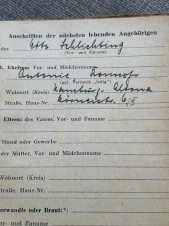 Anschriften der nächsten lebenden Angehörigen
des Otto Schlichting
(Vor- und Zuname)
1. Ehefrau: Vor- und Mädchenname
Antonie
Wohnort (Kreis) Hamburg Altona
Straße, Haus-Nr.
2. Eltern: des Vaters, Vor- und Zuname
Stand oder Gewerbe
der Mutter, Vor- und Mädchenname
Wohnort (Kreis)
Straße, Haus-Nr.
Verwandte oder Braut:*)
Vor- und Zuname